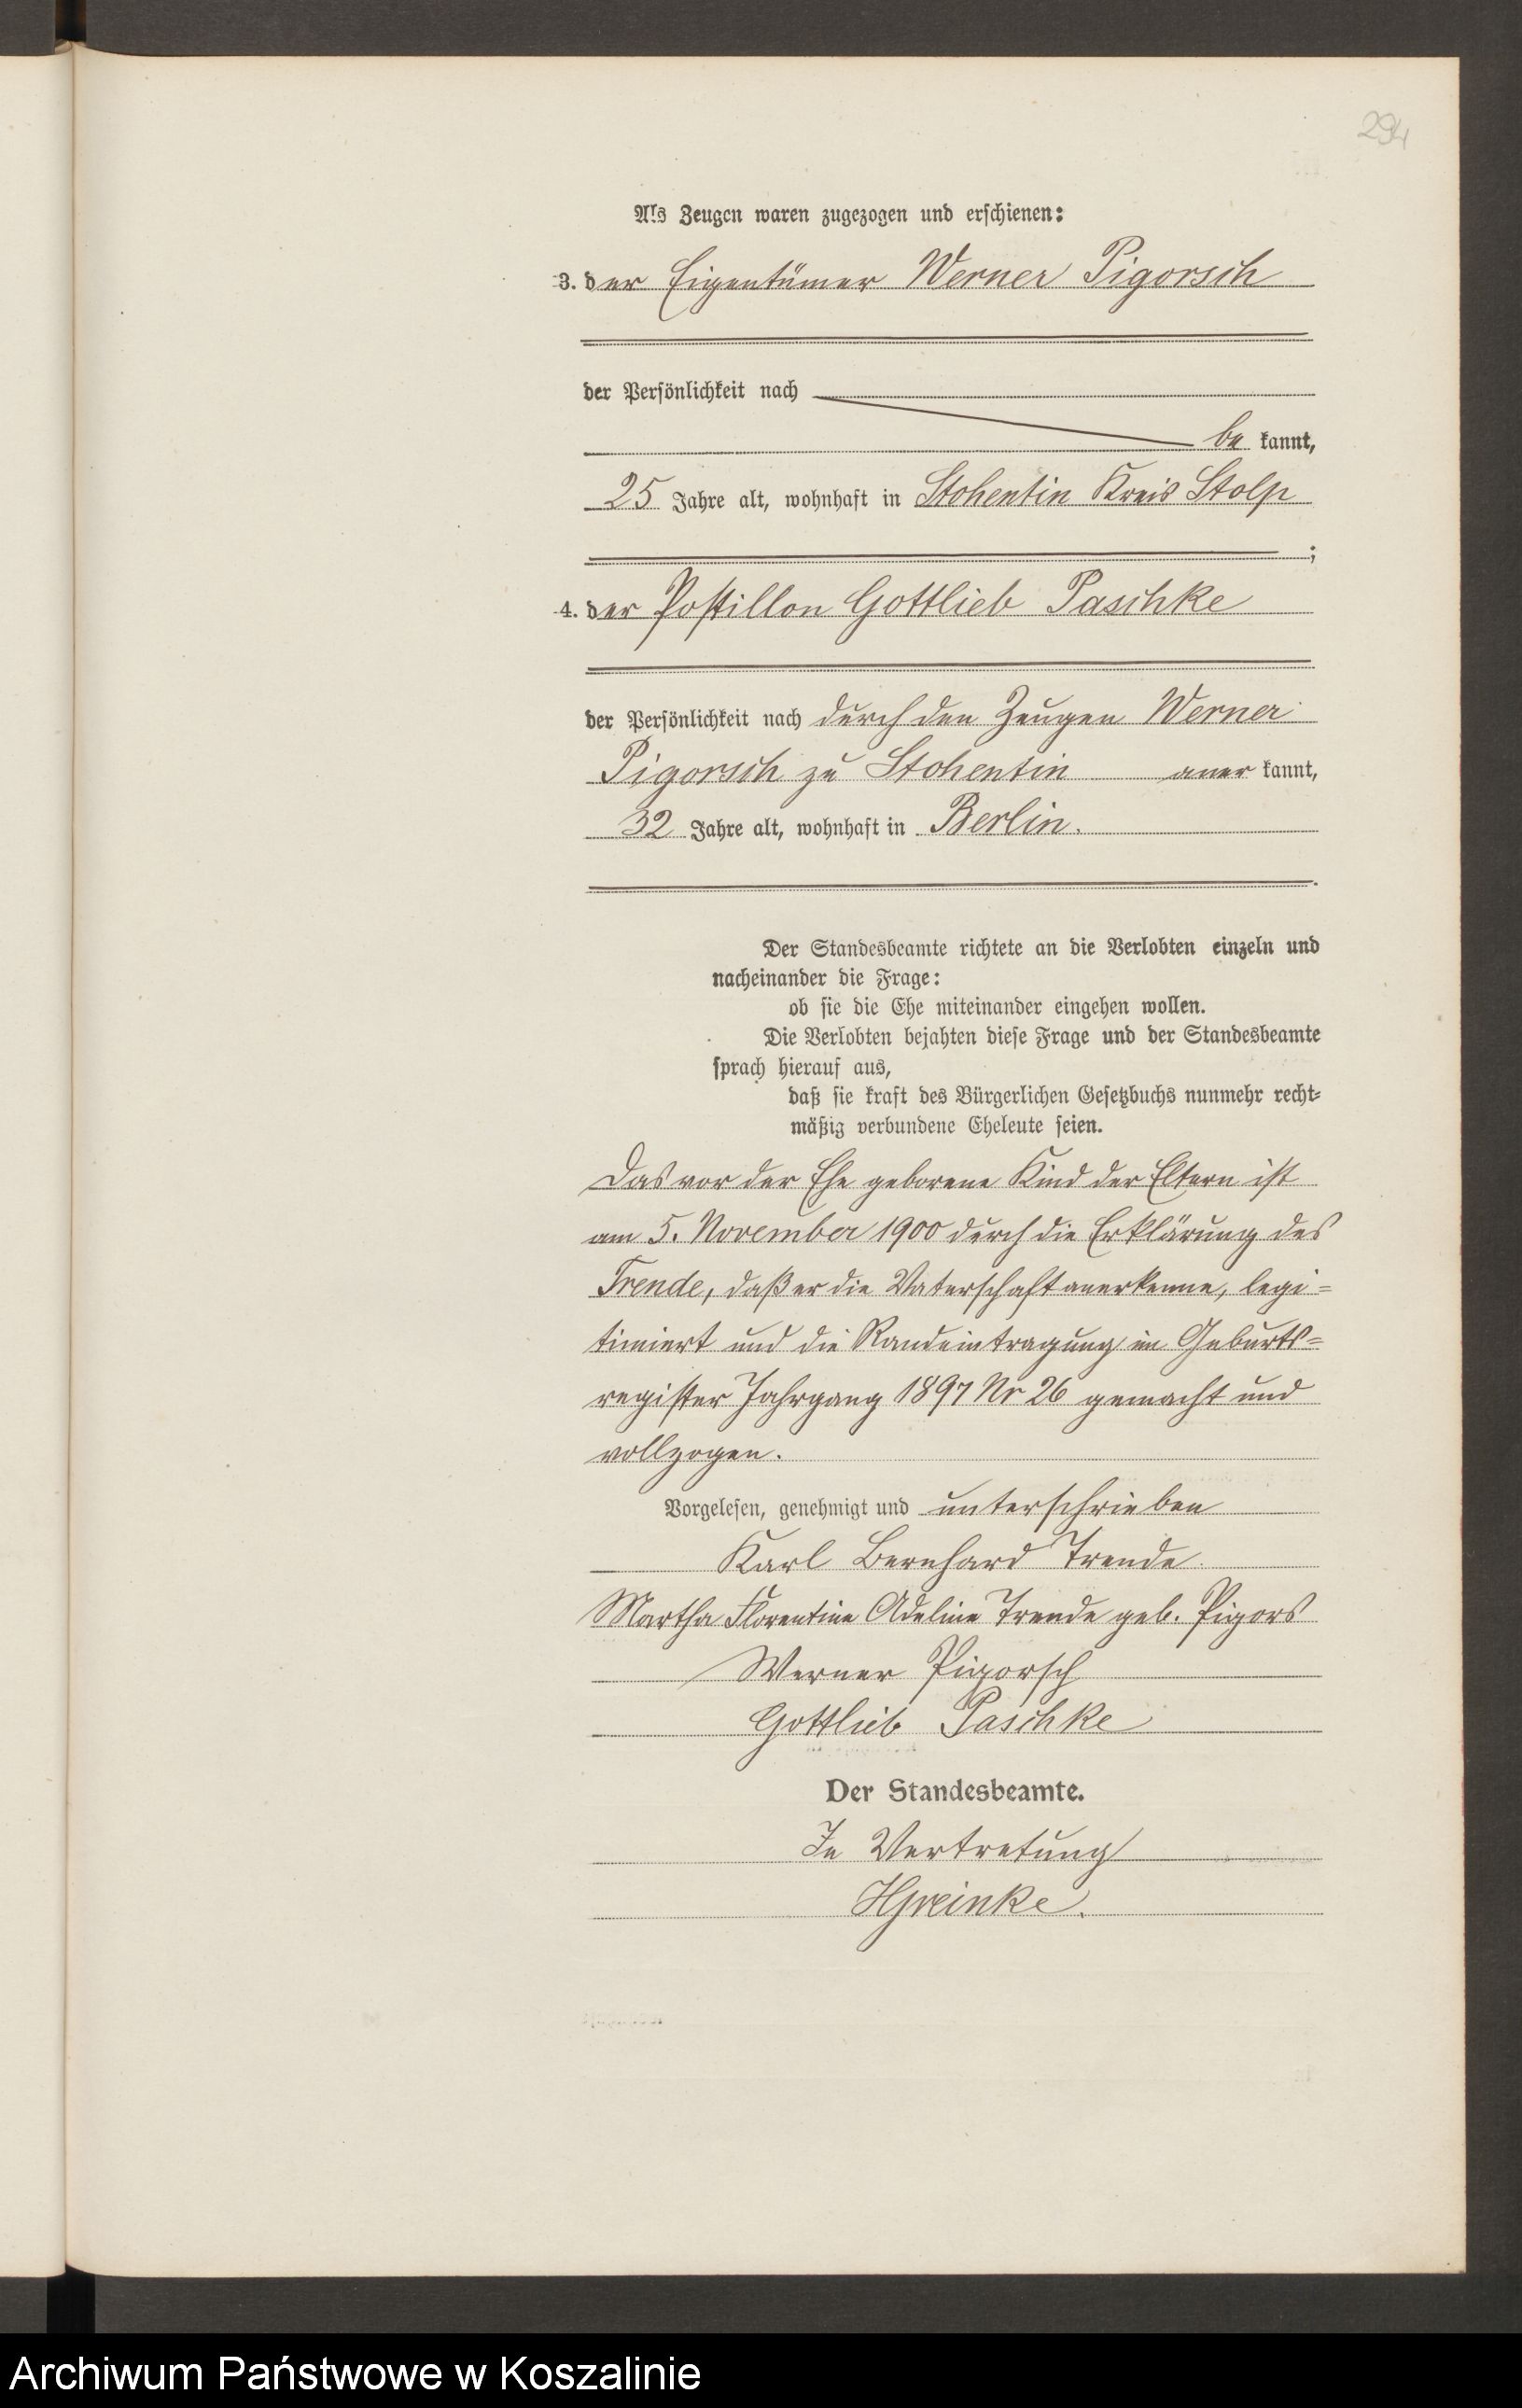 294
Als Zeugen waren zugezogen und erschienen:
3. der Eigentümer Werner Pigorsch
der Persönlichkeit nach
be kannt,
25 Jahre alt, wohnhaft in Stohentin Kreis Stolp
;
4. der Postillon Gottlieb Paschke
der Persönlichkeit nach durch den Zeugen Werner
Pigorsch zu Stohentin aner kannt,
32 Jahre alt, wohnhaft in Berlin.
Der Standesbeamte richtete an die Verlobten einzeln und
nacheinander die Frage:
ob sie die Ehe miteinander eingehen wollen.
Die Verlobten bejahten diese Frage und der Standesbeamte
sprach hierauf aus,
daß sie kraft des Bürgerlichen Gesetzbuchs nunmehr recht-
mäßig verbundene Eheleute seien.
Das vor der Ehe geborene Kind der Eltern ist
am 5. November 1900 durch die Erklärung des
Trende, daß er die Vaterschaft anerkenne, legi-
timiert und die Randeintragung im Geburts-
register Jahrgang 1897 Nr 26 gemacht und
vollzogen.
Vorgelesen, genehmigt und unterschrieben
Karl Bernhard Trende
Martha Florentine Adeline Trende geb. Pigors
Werner Pigorsch
Gottlieb Paschke
Der Standesbeamte.
In Vertretung
HGreinke.
Archiwum Państwowe w Koszalinie